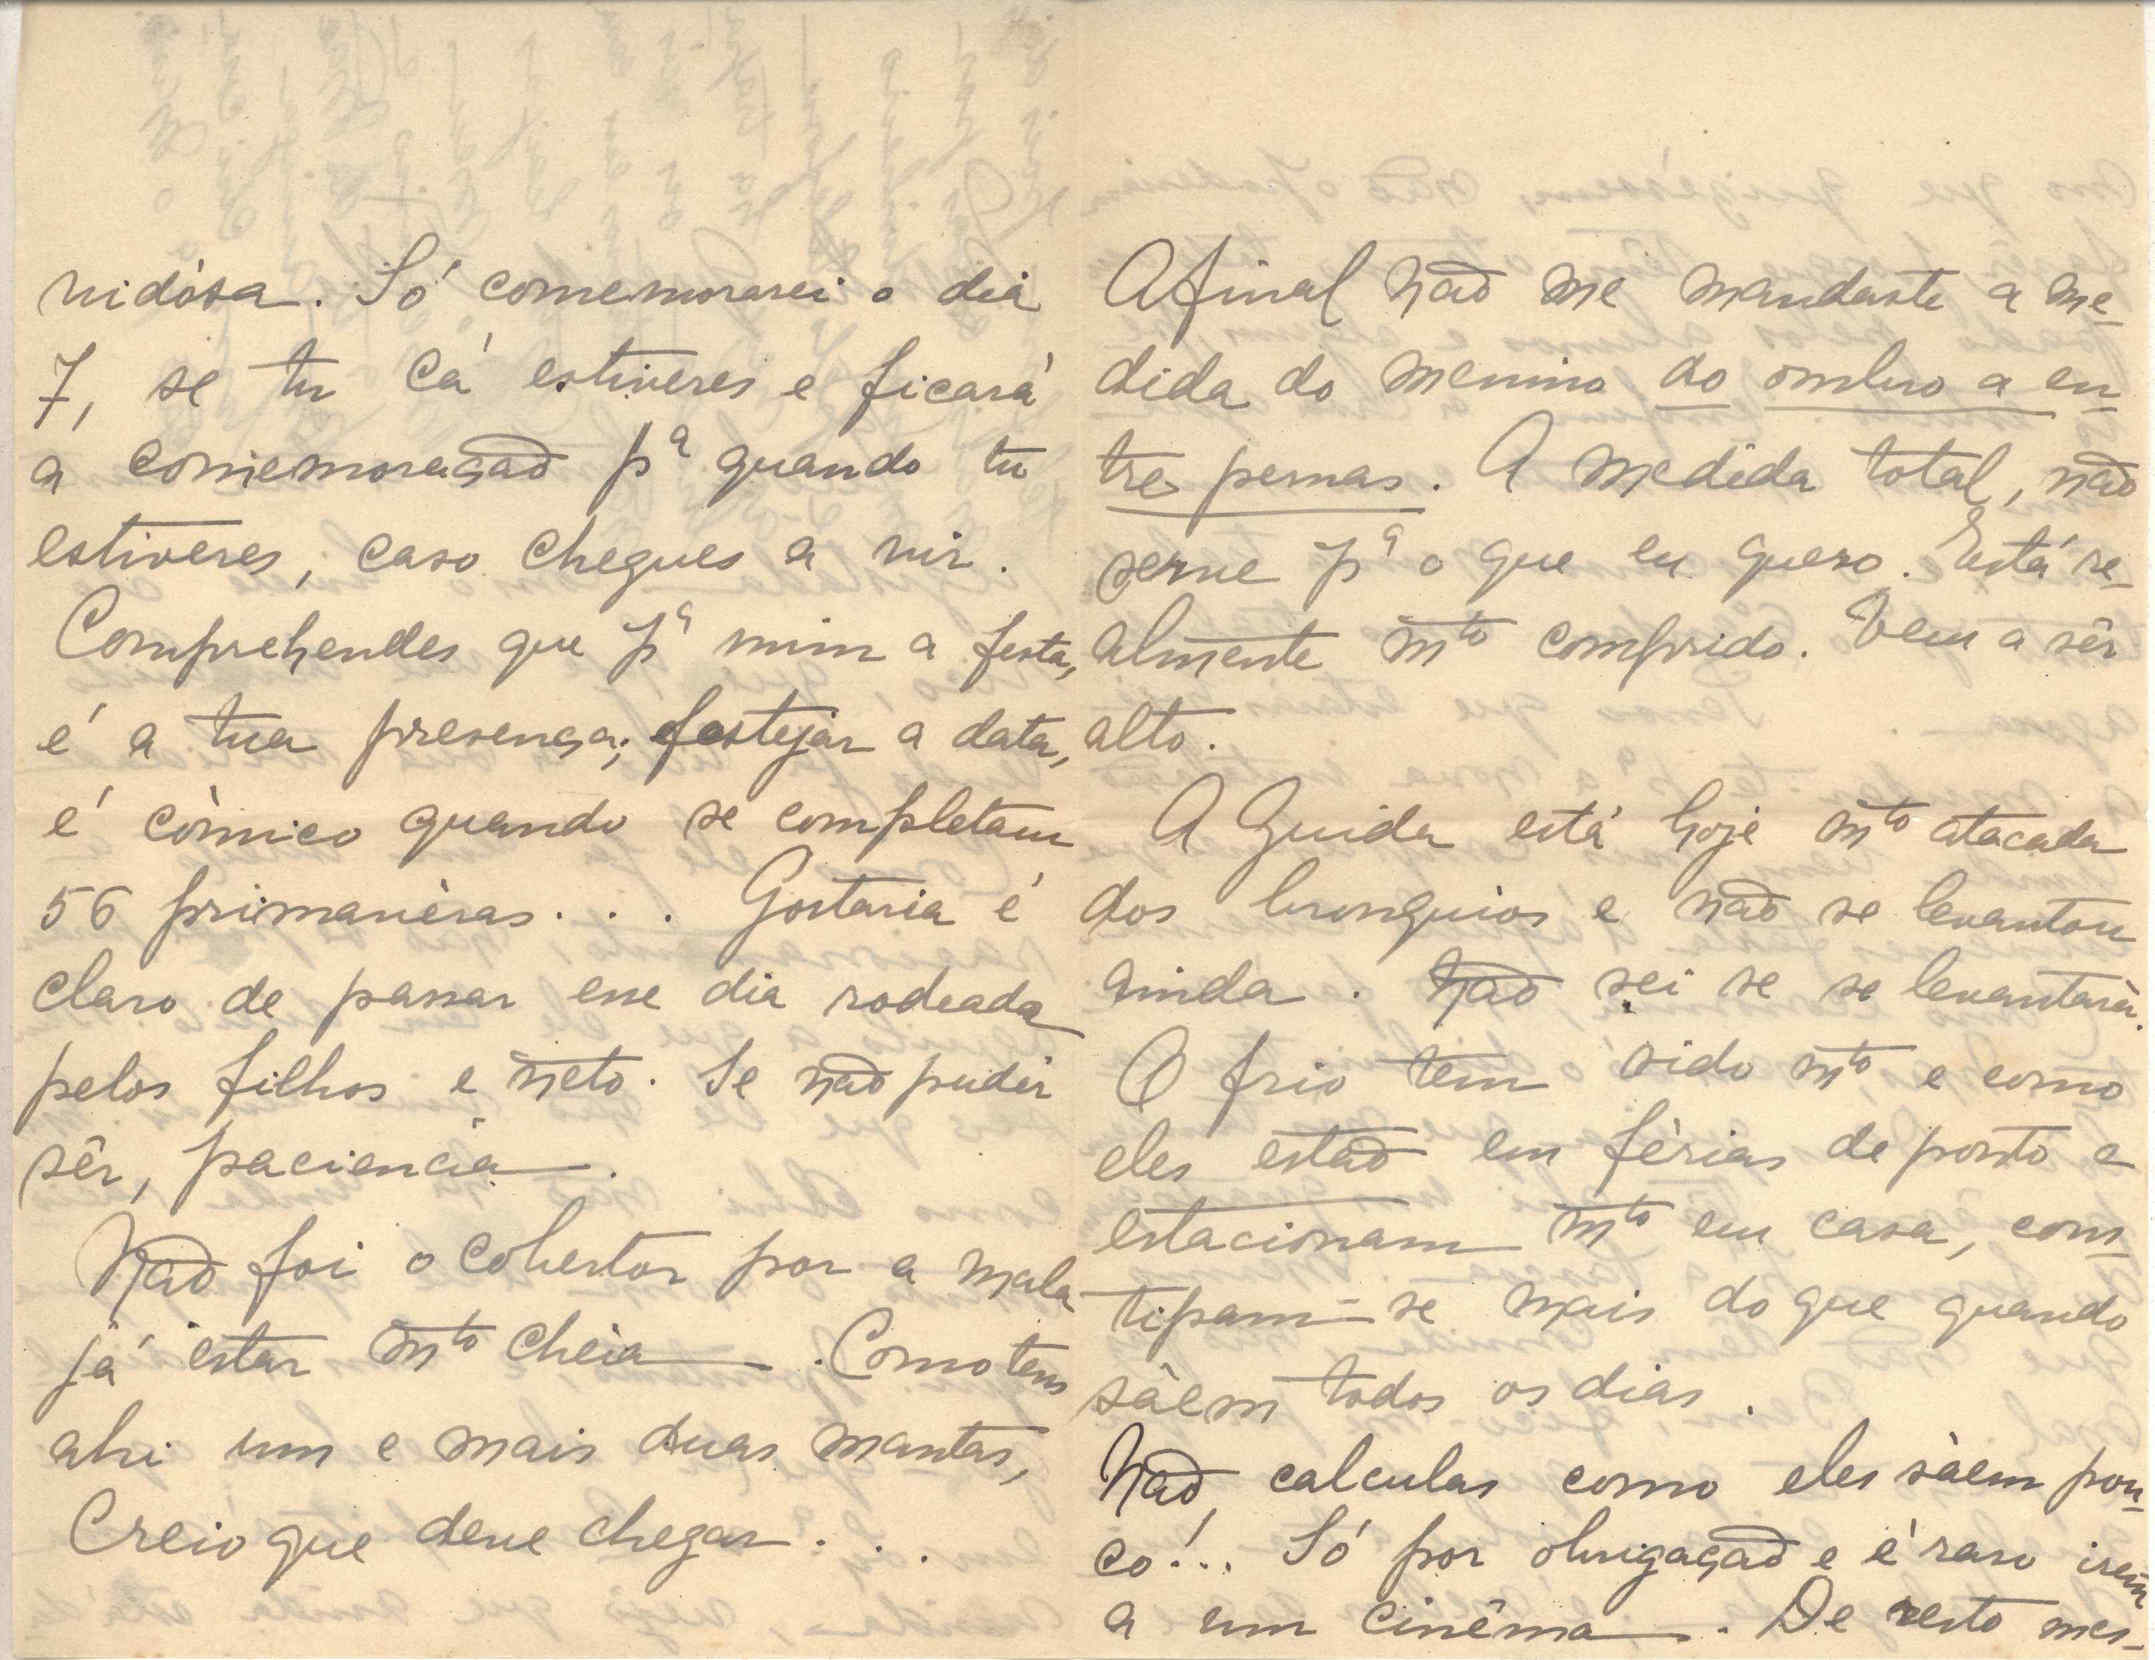 vidósa. Só comemorarei o dia
7, se tu cá estiveres e ficará
a comemoração pª quando tu
estiveres, caso chegues a vir.
Comprehendes que pª mim a festa,
é a tua presença; festejar a data,
é còmico quando se completam
56 primavèras... Gostaria é
claro de passar esse dia rodeada
pelos filhos e neto. Se não pudér
sêr, paciencia.
Não foi o cobertor por a mala
já estar mto chèia. Como tens
ahi um e mais duas mantas,
Creio que deve chegar...
Afinal não me mandaste a me-
dida do menino do ombro a en-
tre pernas. A medida total, não
serve pª o que eu quero. Está re-
almente mto comprido. Vem a sêr
alto.
A Guida está hoje mto atacada
dos bronquios e não se levantou
ainda. Não sei se se levantará.
O frio tem sido mto e como
eles estão em férias de ponto e
estacionam mto em casa, cons-
tipam-se mais do que quando
sàem todos os dias.
Não calculas como eles sàem pou-
co!.. Só por obrigação e é raro irem
a um cinêma. De resto mes-